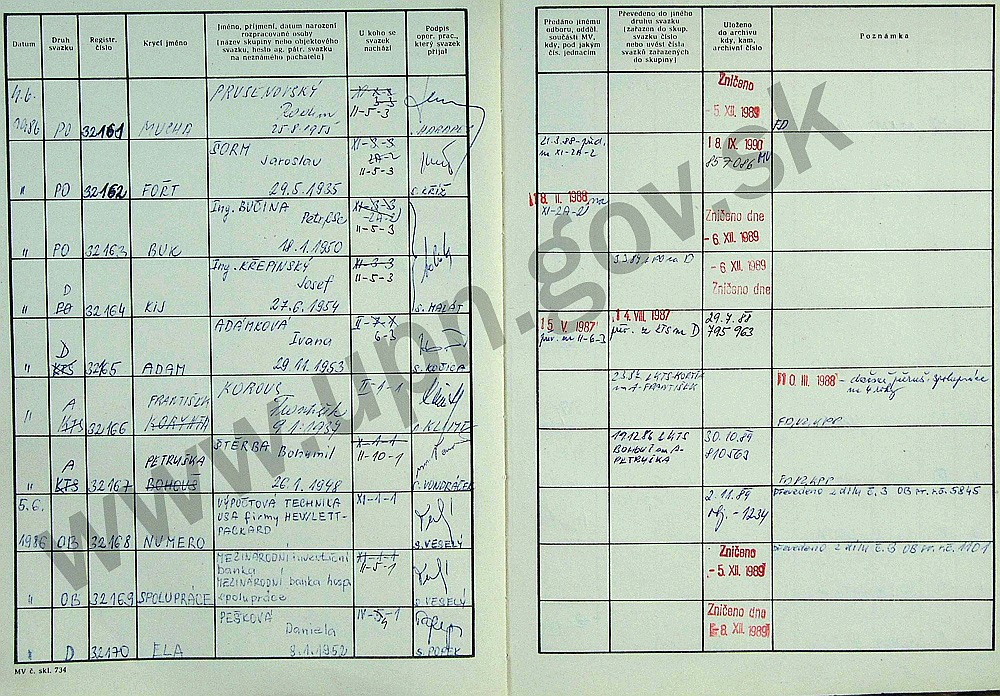 Datum
Druh svazku
Registr. číslo
Krycí jméno
Jméno, příjmení, datum narození
rozpracované osoby
(název skupiny nebo objektového
svazku, heslo ag. pátr. svazku
na neznámého pachatele)
U koho se
svazek
nachází
Podpis
oper. prac.,
který svazek
přijal
Předáno jinému
odboru, odděl.
součásti MV,
kdy, pod jakým
čís. jednacím
Převedeno do jiného
druhu svazku
(zařazen do skup.
svazku číslo
nebo uvést čísla
svazků zařazených
do skupiny)
Uloženo
do archivu
kdy, kam,
archivní číslo
Poznámka
4.6.
1986 PO 32161 MUCHA
PRUSENOVSKÝ
Radim
25.8.1955
II-5-3
Zničeno
- 5. XII. 1989
FD
" PO 32162 FOŘT
ŠORM
Jaroslav
29.5.1935
XI-3-3
2A-2
II-5-3
S. KŘÍŽ
21.3.88 - před.
na XI-2A-2
18. IX. 1990
857086 MV
" PO 32163 BUK
Ing. BUČINA
Petr
18.1.1950
XI-3-3
2A-2
II-5-3
18. II. 1988 na
XI-2A-2
Zničeno dne
- 6. XII. 1989
" D PO 32164 KIS
Ing. KŘEPINSKÝ
Josef
27.6.1954
XI-3-3
II-5-3
S. MALÁT
- 6. XII. 1989
Zničeno dne
" D KTS 32165 ADAM
ADÁMKOVÁ
Ivana
29.11.1953
6-3
15. V. 1987
přev. na II-6-3
14. VIII. 1987
přev. ze KTS na D
29.7.88
795963
" A KTS 32166
FRANTIŠEK
KOROUS
František
9.1.1939
II-1-1
S. KLIMEŠ
10. III. 1988
" A KTS 32167
PETRUŠKA
BOHOUŠ
ŠTĚRBA Bohumil
26.1.1948
X-1-1
II-10-1
S. VONDRÁČEK
191286 KTS
BOHOUŠ na A-
PETRUŠKA
30.10.89
810563
5.6.
1986 OB 32168 NUMERO
VÝPOČTOVÁ TECHNIKA
USA firmy HEWLETT-
PACKARD
XI-1-1
S. VESELÝ
2.11.89
obj. - 1234
převedeno z dílu č. 3 OB nr. r.č. 5845
" OB 32169 SPOLUPRÁCE
MEZINÁRODNÍ investiční
banka
MEZINÁRODNÍ banka hosp.
spolupráce
XI-1-1
II-5-1
S. VESELÝ
Zničeno
- 5. XII. 1989
převedeno z dílu č. 3 OB nr. r.č. 1101
" D 32170 ELA
PEŠKOVÁ
Daniela
9.1.1952
S. POPEK
Zničeno dne
- 8. XII. 1989
MV č. skl. 734
www.upn.gov.sk